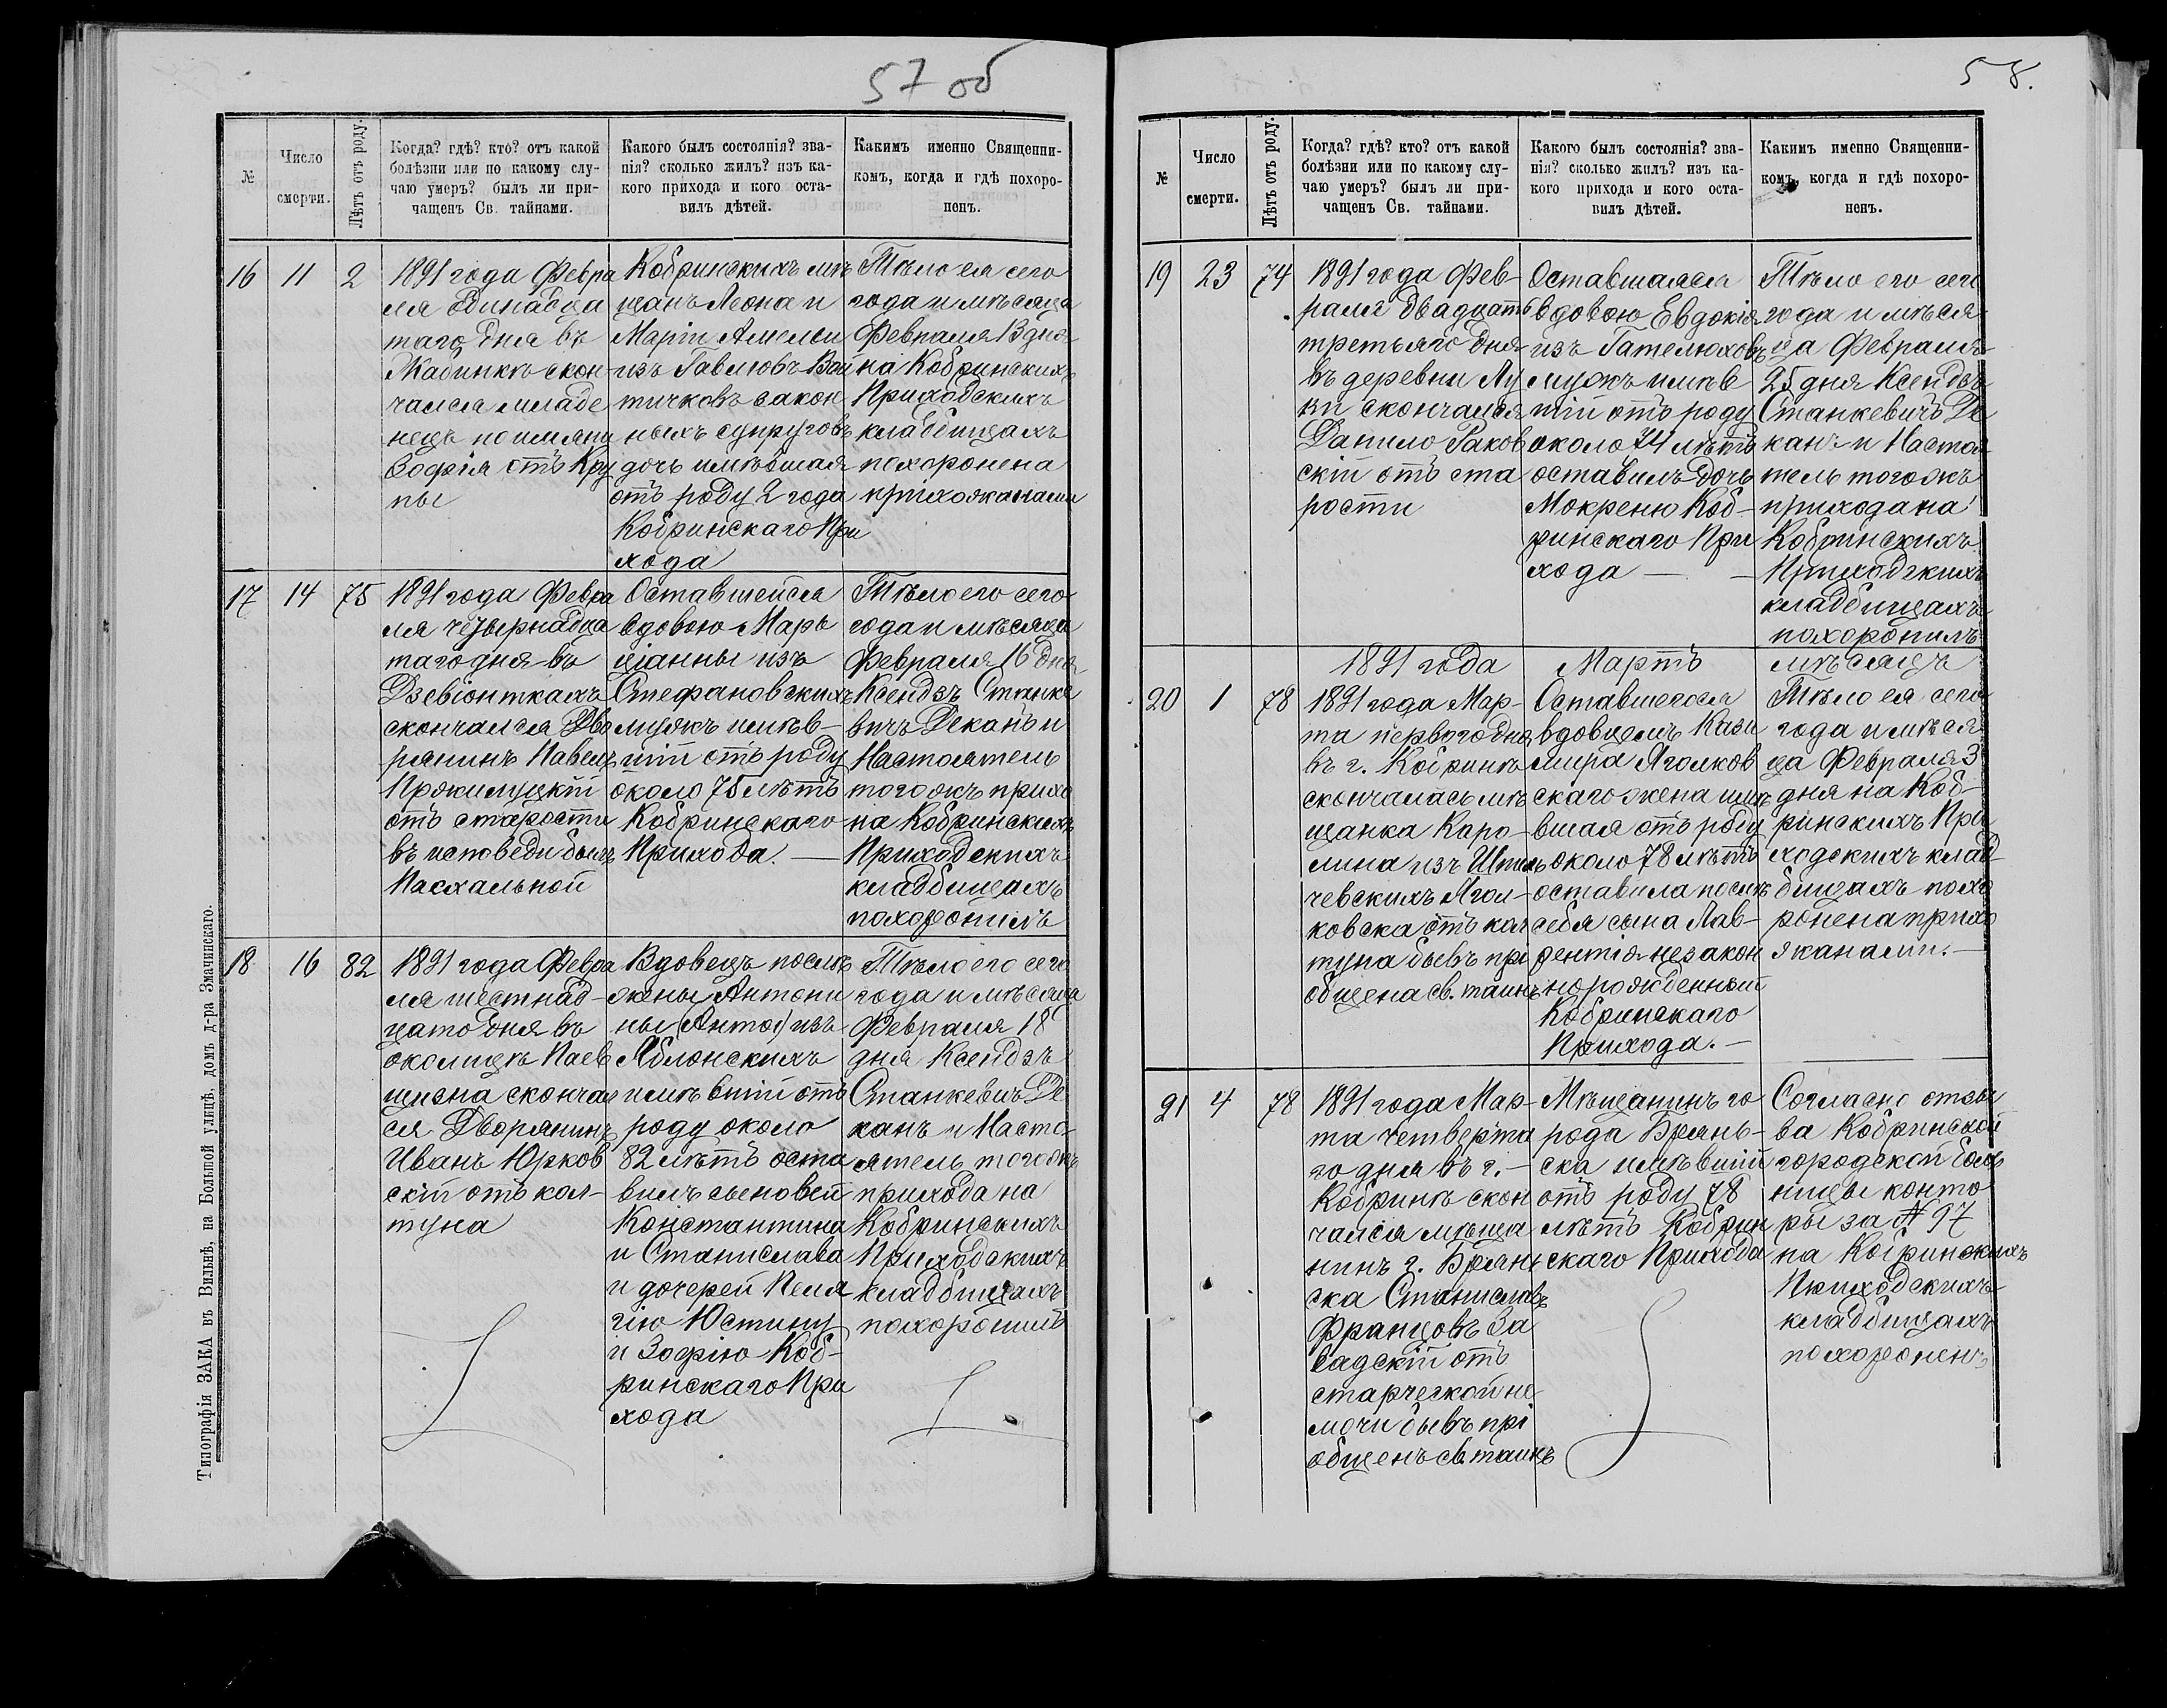 57 об
№
Число
смерти.
Лѣтъ отъ роду.
Когда? гдѣ? кто? отъ какой
болѣзни или по какому слу-
чаю умеръ? былъ ли при-
чащенъ Св. тайнами.
Какого былъ состоянія? зва-
нія? сколько жилъ? изъ ка-
кого прихода и кого оста-
вилъ дѣтей.
Какимъ именно Священни-
комъ, когда и гдѣ похоро-
ненъ.
16
11
2
1891 года Февра
ля одинадца
таго дня въ
Жабинкѣ скон-
чался младе
нецъ по имяни
Зофія отъ Кру
пы
Кобринскихъ мѣ
щанъ Леона и
Маріи Амельи
изъ Гавлювъ Вой
тичковъ закон
ныхъ супруговъ
дочь имѣвшая
отъ роду 2 года
Кобринскаго При
хода
Тѣло ея сего
года и мѣсяца
Февраля 13 дня
на Кобринскихъ
Приходскихъ
кладбищахъ
похоронена
прихожанами
17
14
75
1891 года Февра
ля четырнадца
таго дня въ
Дзевіонткахъ
скончался Дво
рянинъ Павелъ
Прокилуцкій
отъ старости
въ исповеди былъ
Пасхальной
Оставшейся
вдовою Марь
ціанны изъ
Стефановскихъ
мужъ имѣв-
шій отъ роду
около 75 лѣтъ
Кобринскаго
Прихода. —
Тѣло его сего
года и мѣсяца
Февраля 16 дня
Ксендзъ Станке
вичъ Деканъ и
Настоятель
тогожъ прихо
на Кобринскихъ
Приходскихъ
кладбищахъ
похоронилъ
18
16
82
1891 года Февра
ля шестнад-
цато дня въ
околицѣ Паев
щизна скончал
ся Дворянинъ
Иванъ Юрков
скій отъ кол-
туна
Вдовецъ послѣ
жены Антони
ны (Антоа) изъ
Яблонскихъ
имѣвшій отъ
роду около
82 лѣтъ оста
вилъ сыновей
Константина
и Станислава
и дочерей Пела
гію Юстину
и Зофію Коб-
ринскаго При
хода
Тѣло его сего
года и мѣсяца
Февраля 18
дня Ксендзъ
Станкевичъ Де
канъ и Насто-
ятель тогожъ
прихода на
Кобринскихъ
Приходскихъ
кладбищахъ
похоронилъ
Типографія ЗАКА въ Вильнѣ, на Большой улицѣ, домъ д-ра Змачинскаго.
58.
№
Число
смерти.
Лѣтъ отъ роду.
Когда? гдѣ? кто? отъ какой
болѣзни или по какому слу-
чаю умеръ? былъ ли при-
чащенъ Св. тайнами.
Какого былъ состоянія? зва-
нія? сколько жилъ? изъ ка-
кого прихода и кого оста-
вилъ дѣтей.
Какимъ именно Священни-
комъ, когда и гдѣ похоро-
ненъ.
19
23
74
1891 года Фев-
раля двадцать
третьяго дня
въ деревни Лу
ки скончался
Данило Раков
скій отъ ста
рости
Оставшаяся
вдовою Евдокія
изъ Гателюховъ
мужъ имѣв
шій отъ роду
около 74 лѣтъ
оставилъ дочь
Мокреню Коб-
ринскаго При
хода —
Тѣло его сего
года и мѣся
ца Февраля
25 дня Ксендзъ
Станкевичъ Де
канъ и Настоя
тель тогожъ
прихода на
Кобринскихъ
Приходскихъ
кладбищахъ
похоронилъ
1891 года Мартъ мѣсяцъ
20
1
78
1891 года Мар-
та перваго дня
въ г. Кобринѣ
скончалась мѣ
щанка Каро-
лина изъ Шпиль
чевскихъ Ягол-
ковска отъ кол
туна бывъ прі
общена св. таинъ
Оставшегося
вдовцемъ Кази
мира Яголков
скаго жена имѣ
вшая отъ роду
около 78 лѣтъ
оставила послѣ
себя сына Лав-
рентія незакон
норожденный
Кобринскаго
Прихода. —
Тѣло ея сего
года и мѣся
ца Февраля 3
дня на Коб-
ринскихъ При
ходскихъ клад-
бищахъ похо
ронена прихо
жанами. —
21
4
78
1891 года Мар-
та четверта
го дня въ г. —
Кобринѣ скон
чался мѣща
нинъ г. Брянь
ска Станиславъ
Францовъ За
вадскій отъ
старческой не
мочи бывъ прі
общенъ св. таинъ
Мѣщанинъ го
рода Брянь-
ска имѣвшій
отъ роду 78
лѣтъ Кобрин
скаго Прихода
Согласно отзы
ва Кобринской
городской Боль
ницы конто
ры за № 97
на Кобринскихъ
Приходскихъ
кладбищахъ
похороненъ